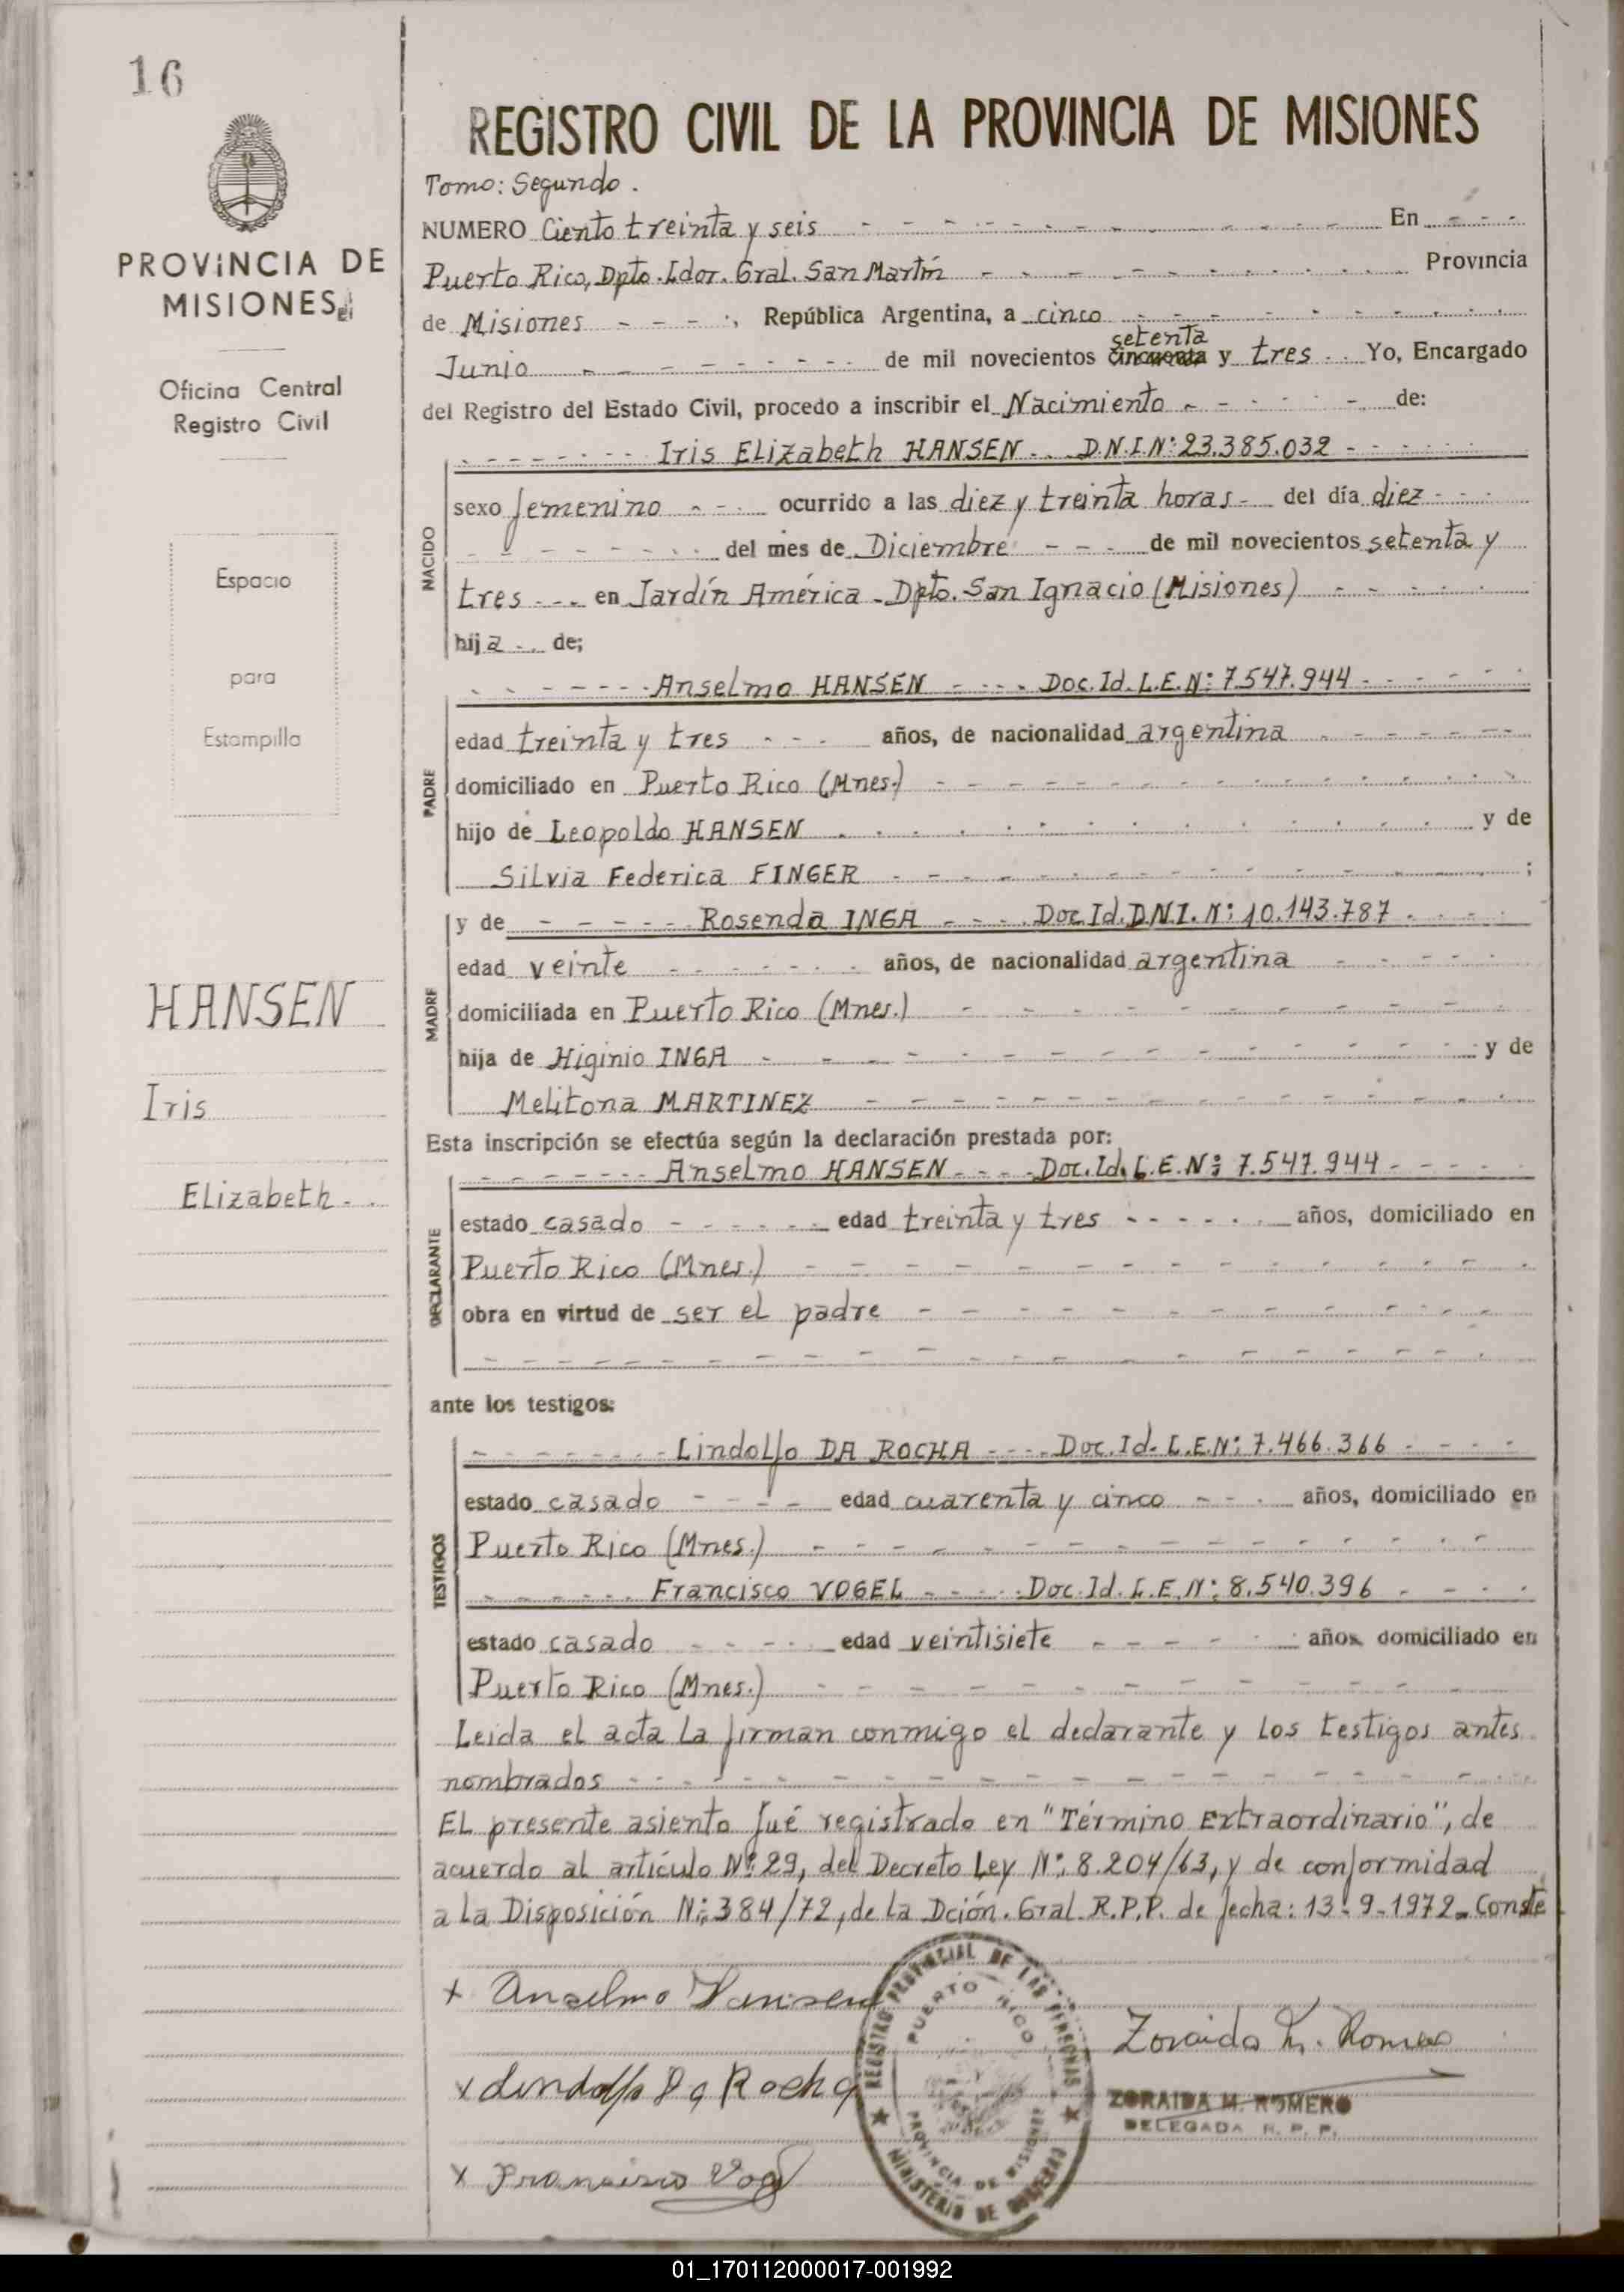 16
PROVINCIA DE
MISIONES
Oficina Central
Registro Civil
Espacio
para
Estampilla
HANSEN
Iris
Elizabeth
REGISTRO CIVIL DE LA PROVINCIA DE MISIONES
Tomo: Segundo.
NUMERO Ciento treinta y seis En
Puerto Rico, Dpto. Ldor. Gral. San Martín Provincia
de Misiones, República Argentina, a cinco
setenta
Junio de mil novecientos cincuenta y tres Yo, Encargado
del Registro del Estado Civil, procedo a inscribir el Nacimiento de:
Iris Elizabeth HANSEN D.N.I.Nº: 23.385.032
NACIDO
sexo femenino ocurrido a las diez y treinta horas del día diez
del mes de Diciembre de mil novecientos setenta y
tres en Jardín América - Dpto. San Ignacio (Misiones)
hija de;
Anselmo HANSEN Doc. Id. L.E. Nº: 7.547.944
PADRE
edad treinta y tres años, de nacionalidad argentina
domiciliado en Puerto Rico (Mnes.)
hijo de Leopoldo HANSEN y de
Silvia Federica FINGER ;
y de Rosenda INGA Doc. Id. D.N.I. Nº: 10.143.787
MADRE
edad veinte años, de nacionalidad argentina
domiciliada en Puerto Rico (Mnes.)
hija de Higinio INGA y de
Melitona MARTINEZ
Esta inscripción se efectúa según la declaración prestada por:
Anselmo HANSEN Doc. Id. L.E. Nº: 7.547.944
DECLARANTE
estado casado edad treinta y tres años, domiciliado en
Puerto Rico (Mnes.)
obra en virtud de ser el padre
ante los testigos:
Lindolfo DA ROCHA Doc. Id. L.E.Nº: 7.466.366
TESTIGOS
estado casado edad cuarenta y cinco años, domiciliado en
Puerto Rico (Mnes.)
Francisco VOGEL Doc. Id. L.E. Nº: 8.540.396
estado casado edad veintisiete años, domiciliado en
Puerto Rico (Mnes.)
Leida el acta la firman conmigo el declarante y los testigos antes
nombrados
El presente asiento fué registrado en "Término Extraordinario", de
acuerdo al artículo Nº 29, del Decreto Ley Nº: 8.204/63, y de conformidad
a la Disposición Nº: 384/72, de la Dción. Gral. R.P.P. de fecha: 13-9-1972. Conste
x Anselmo Hansen
x Lindolfo Da Rocha
x Francisco Vogel
REGISTRO PROVINCIAL DE LAS PERSONAS
PUERTO RICO
PROVINCIA DE MISIONES
MINISTERIO DE GOBIERNO
Zoraida M. Romero
ZORAIDA M. ROMERO
DELEGADA R. P. P.
01_170112000017-001992